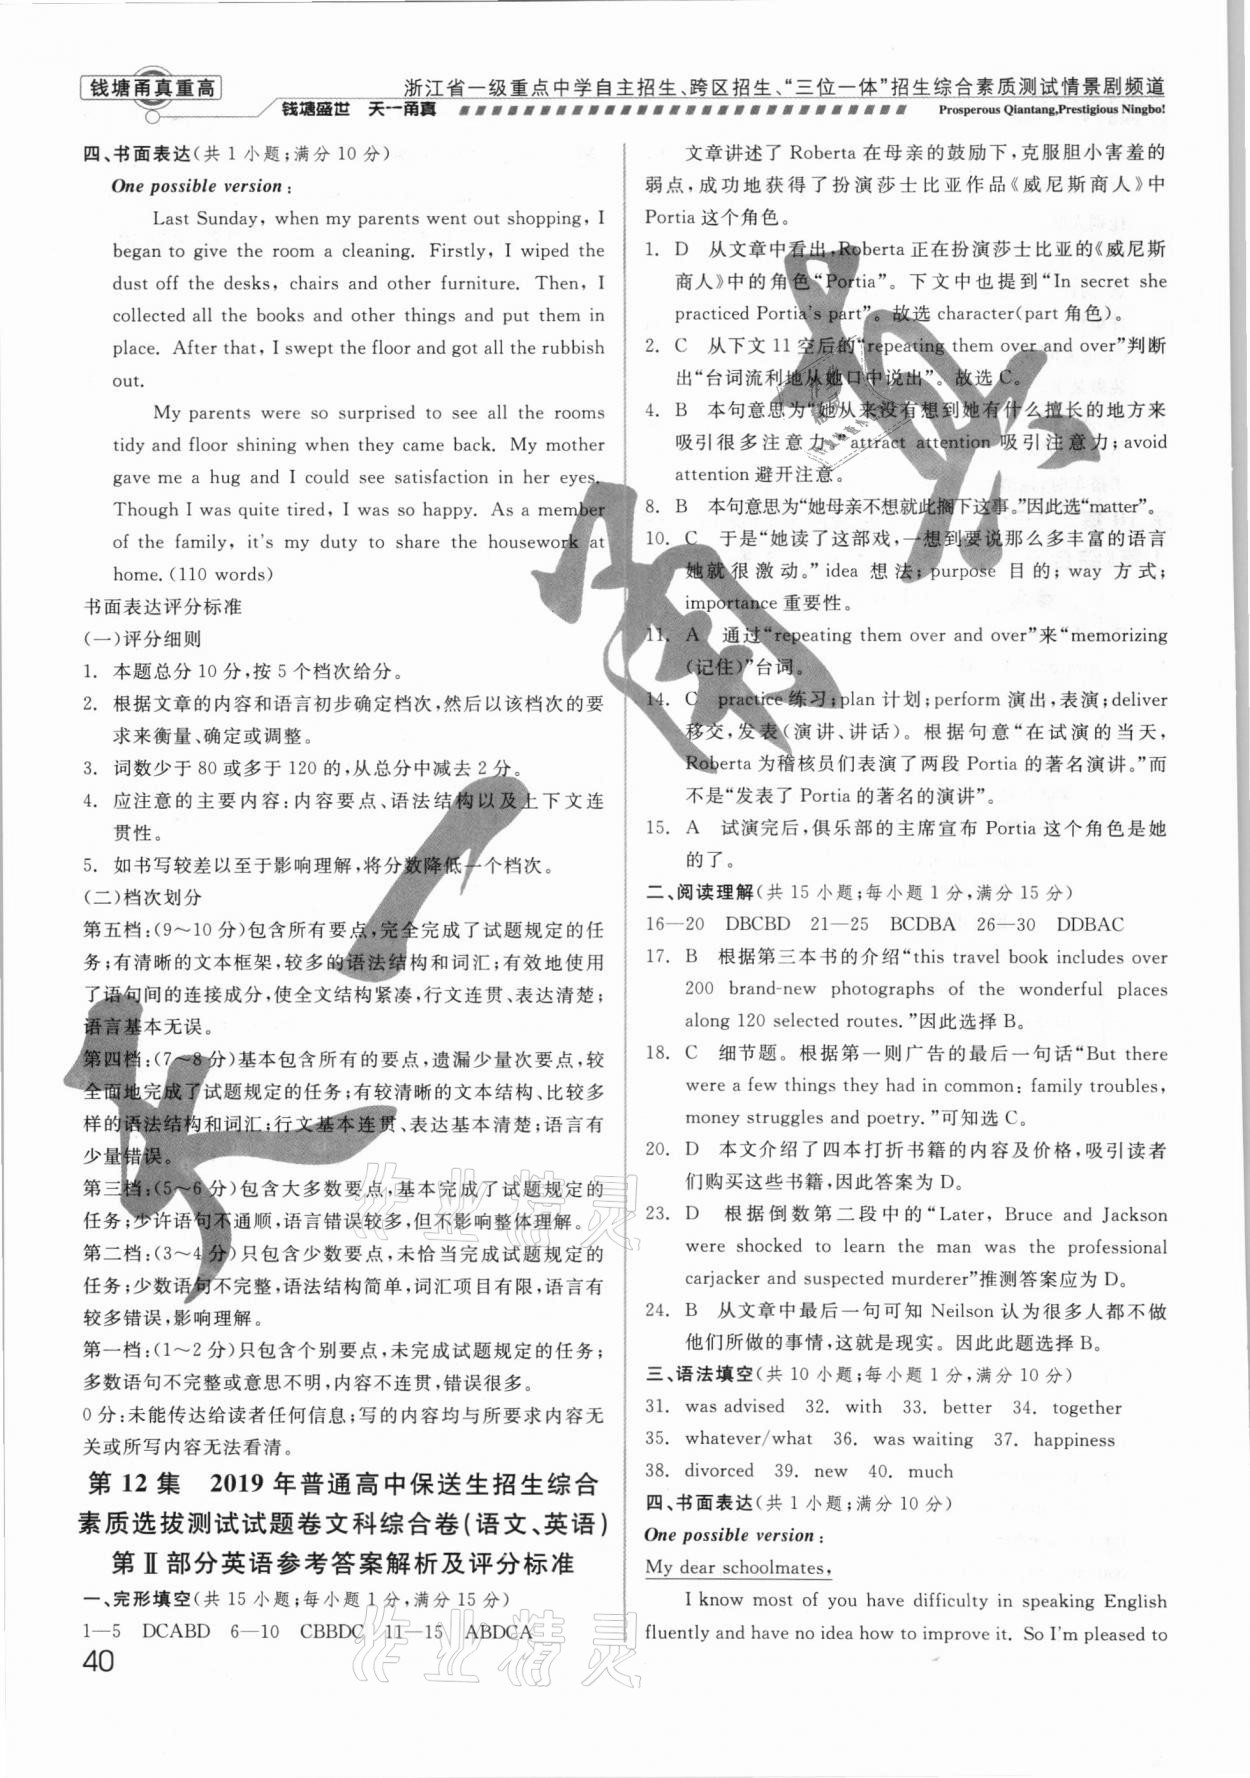 钱塘甬真重高
浙江省一级重点中学自主招生、跨区招生、“三位一体”招生综合素质测试情景剧频道
钱塘盛世 天一甬真
Prosperous Qiantang,Prestigious Ningbo!
四、书面表达(共1小题;满分10分)
One possible version:
Last Sunday, when my parents went out shopping, I
began to give the room a cleaning. Firstly, I wiped the
dust off the desks, chairs and other furniture. Then, I
collected all the books and other things and put them in
place. After that, I swept the floor and got all the rubbish
out.
My parents were so surprised to see all the rooms
tidy and floor shining when they came back. My mother
gave me a hug and I could see satisfaction in her eyes.
Though I was quite tired, I was so happy. As a member
of the family, it's my duty to share the housework at
home.(110 words)
书面表达评分标准
(一)评分细则
1. 本题总分10分,按5个档次给分。
2. 根据文章的内容和语言初步确定档次,然后以该档次的要
求来衡量、确定或调整。
3. 词数少于80或多于120的,从总分中减去2分。
4. 应注意的主要内容:内容要点、语法结构以及上下文连
贯性。
5. 如书写较差以至于影响理解,将分数降低一个档次。
(二)档次划分
第五档:(9~10分)包含所有要点,完全完成了试题规定的任
务;有清晰的文本框架,较多的语法结构和词汇;有效地使用
了语句间的连接成分,使全文结构紧凑,行文连贯、表达清楚;
语言基本无误。
第四档:(7~8分)基本包含所有的要点,遗漏少量次要点,较
全面地完成了试题规定的任务;有较清晰的文本结构、比较多
样的语法结构和词汇;行文基本连贯、表达基本清楚;语言有
少量错误。
第三档:(5~6分)包含大多数要点,基本完成了试题规定的
任务;少许语句不通顺,语言错误较多,但不影响整体理解。
第二档:(3~4分)只包含少数要点,未恰当完成试题规定的
任务;少数语句不完整,语法结构简单,词汇项目有限,语言有
较多错误,影响理解。
第一档:(1~2分)只包含个别要点,未完成试题规定的任务;
多数语句不完整或意思不明,内容不连贯,错误很多。
0分:未能传达给读者任何信息;写的内容均与所要求内容无
关或所写内容无法看清。
第12集 2019年普通高中保送生招生综合
素质选拔测试试题卷文科综合卷(语文、英语)
第Ⅱ部分英语参考答案解析及评分标准
一、完形填空(共15小题;每小题1分,满分15分)
1—5 DCABD 6—10 CBBDC 11—15 ABDCA
40
文章讲述了Roberta在母亲的鼓励下,克服胆小害羞的
弱点,成功地获得了扮演莎士比亚作品《威尼斯商人》中
Portia这个角色。
1. D 从文章中看出,Roberta正在扮演莎士比亚的《威尼斯
商人》中的角色“Portia”。下文中也提到“In secret she
practiced Portia's part”。故选character(part角色)。
2. C 从下文11空后的“repeating them over and over”判断
出“台词流利地从她口中说出”。故选C。
4. B 本句意思为“她从来没有想到她有什么擅长的地方来
吸引很多注意力。”attract attention吸引注意力;avoid
attention避开注意。
8. B 本句意思为“她母亲不想就此搁下这事。”因此选“matter”。
10. C 于是“她读了这部戏,一想到要说那么多丰富的语言
她就很激动。”idea想法;purpose目的;way方式;
importance重要性。
11. A 通过“repeating them over and over”来“memorizing
(记住)”台词。
14. C practice练习;plan计划;perform演出,表演;deliver
移交,发表(演讲、讲话)。根据句意“在试演的当天,
Roberta为稽核员们表演了两段Portia的著名演讲。”而
不是“发表了Portia的著名的演讲”。
15. A 试演完后,俱乐部的主席宣布Portia这个角色是她
的了。
二、阅读理解(共15小题;每小题1分,满分15分)
16—20 DBCBD 21—25 BCDBA 26—30 DDBAC
17. B 根据第三本书的介绍“this travel book includes over
200 brand-new photographs of the wonderful places
along 120 selected routes.”因此选择B。
18. C 细节题。根据第一则广告的最后一句话“But there
were a few things they had in common: family troubles,
money struggles and poetry.”可知选C。
20. D 本文介绍了四本打折书籍的内容及价格,吸引读者
们购买这些书籍,因此答案为D。
23. D 根据倒数第二段中的“Later, Bruce and Jackson
were shocked to learn the man was the professional
carjacker and suspected murderer”推测答案应为D。
24. B 从文章中最后一句可知Neilson认为很多人都不做
他们所做的事情,这就是现实。因此此题选择B。
三、语法填空(共10小题;每小题1分,满分10分)
31. was advised 32. with 33. better 34. together
35. whatever/what 36. was waiting 37. happiness
38. divorced 39. new 40. much
四、书面表达(共1小题,满分10分)
One possible version:
My dear schoolmates,
I know most of you have difficulty in speaking English
fluently and have no idea how to improve it. So I'm pleased to
天一甬真
作业精灵
作业精灵